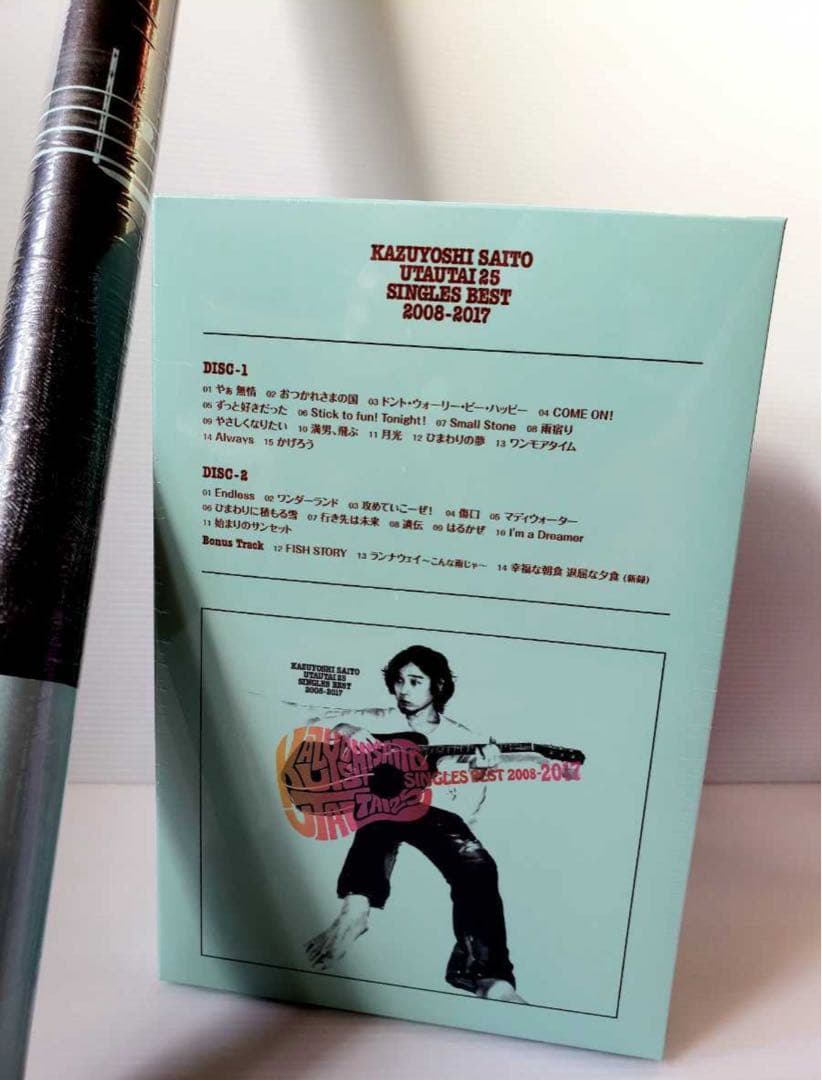 KAZUYOSHI SAITO
UTAUTAI 25
SINGLES BEST
2008-2017
DISC-1
01 やぁ 無情 02 おつかれさまの国 03 ドント・ウォーリー・ビー・ハッピー 04 COME ON!
05 ずっと好きだった 06 Stick to fun! Tonight! 07 Small Stone 08 雨宿り
09 やさしくなりたい 10 満男、飛ぶ 11 月光 12 ひまわりの夢 13 ワンモアタイム
14 Always 15 かげろう
DISC-2
01 Endless 02 ワンダーランド 03 攻めていこーぜ! 04 傷口 05 マディウォーター
06 ひまわりに積もる雪 07 行き先は未来 08 遺伝 09 はるかぜ 10 I'm a Dreamer
11 始まりのサンセット
Bonus Track 12 FISH STORY 13 ランナウェイ〜こんな雨じゃ〜 14 幸福な朝食 退屈な夕食 (新録)
KAZUYOSHI SAITO
UTAUTAI 25
SINGLES BEST
2008-2017
KAZUYOSHI SAITO
UTAUTAI 25
SINGLES BEST 2008-2017